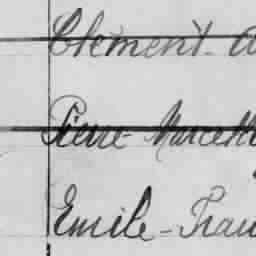 Clement
Pierre-Marcel
Emile-Fran